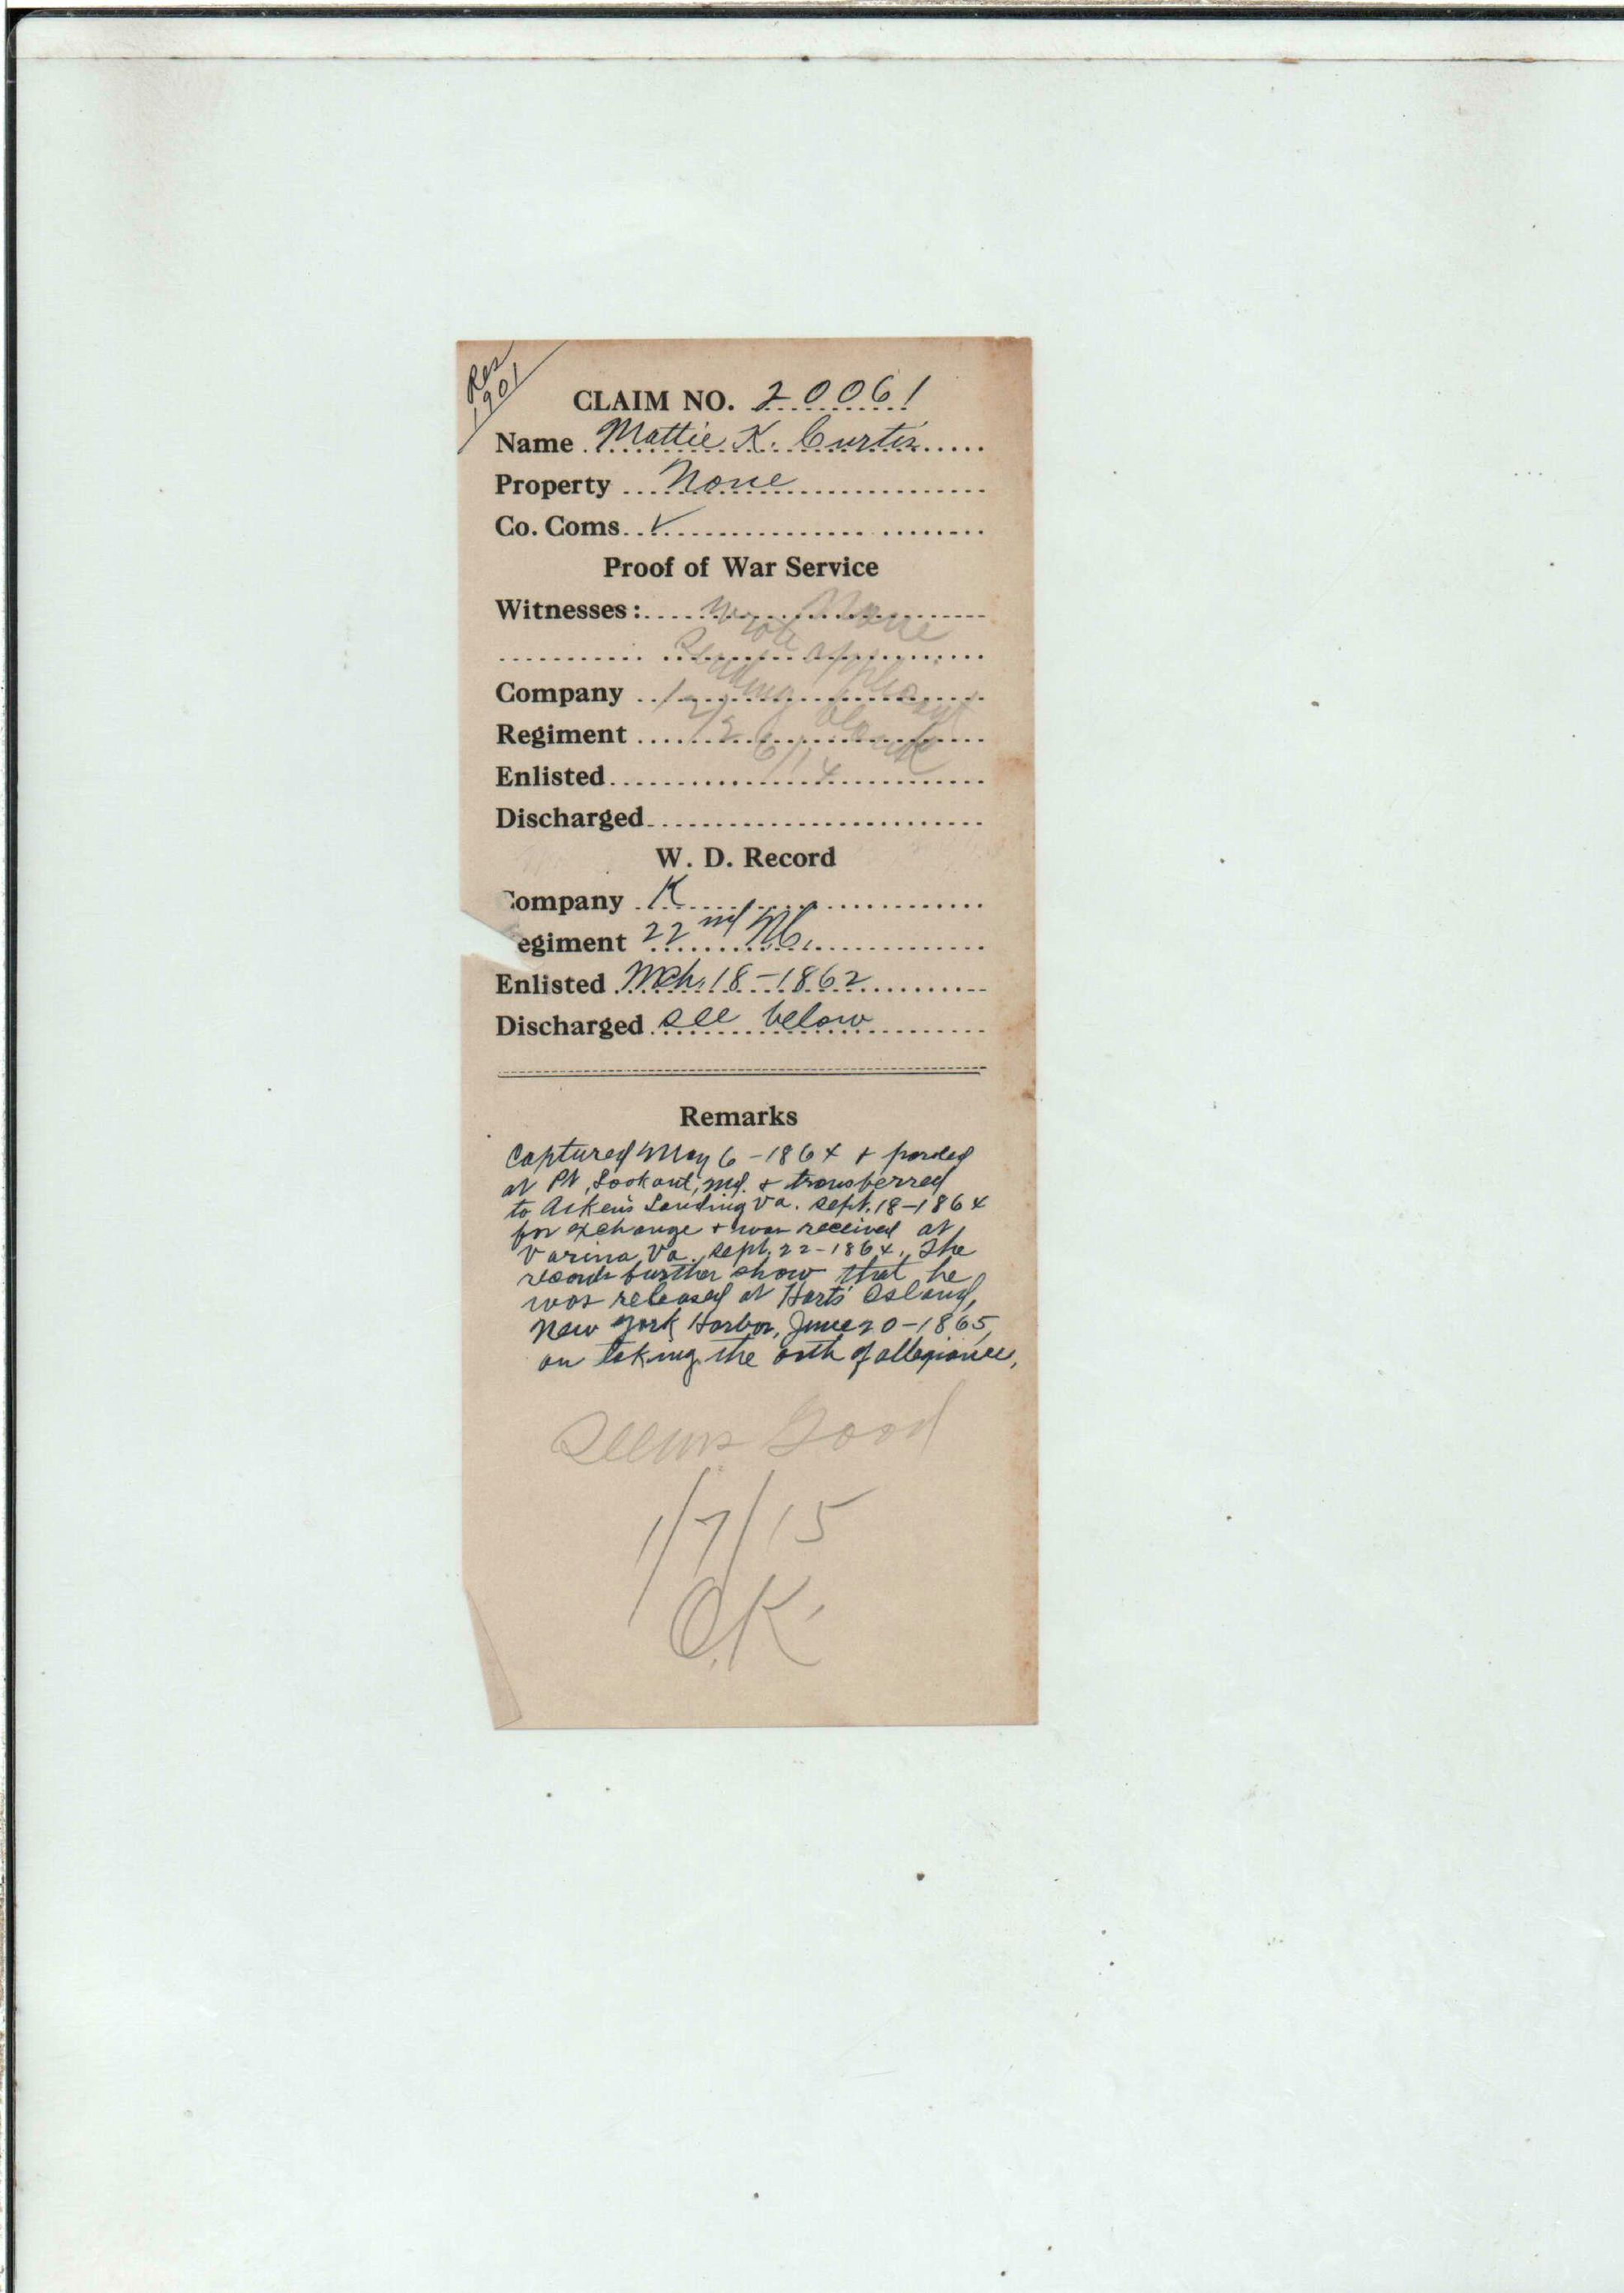 Res
1901
CLAIM NO. 20061
Name Mattie K. Curtis
Property None
Co. Coms. ✓
Proof of War Service
Witnesses: None
Wrote
Sending appli
Company cant
Regiment blank
12/26/14
Enlisted
Discharged
W. D. Record
Company K
egiment 22nd NC.
Enlisted Mch. 18-1862
Discharged see below
Remarks
Captured May 6-1864 & paroled
at Pt. Lookout, Md. & transferred
to Aiken's Landing Va. Sept. 18-1864
for exchange & was received at
Varina, Va. Sept. 22-1864. The
records further show that he
was released at Harts' Island,
New York Harbor, June 20-1865,
on taking the oath of allegiance.
Seems Good
1/7/15
O.K.